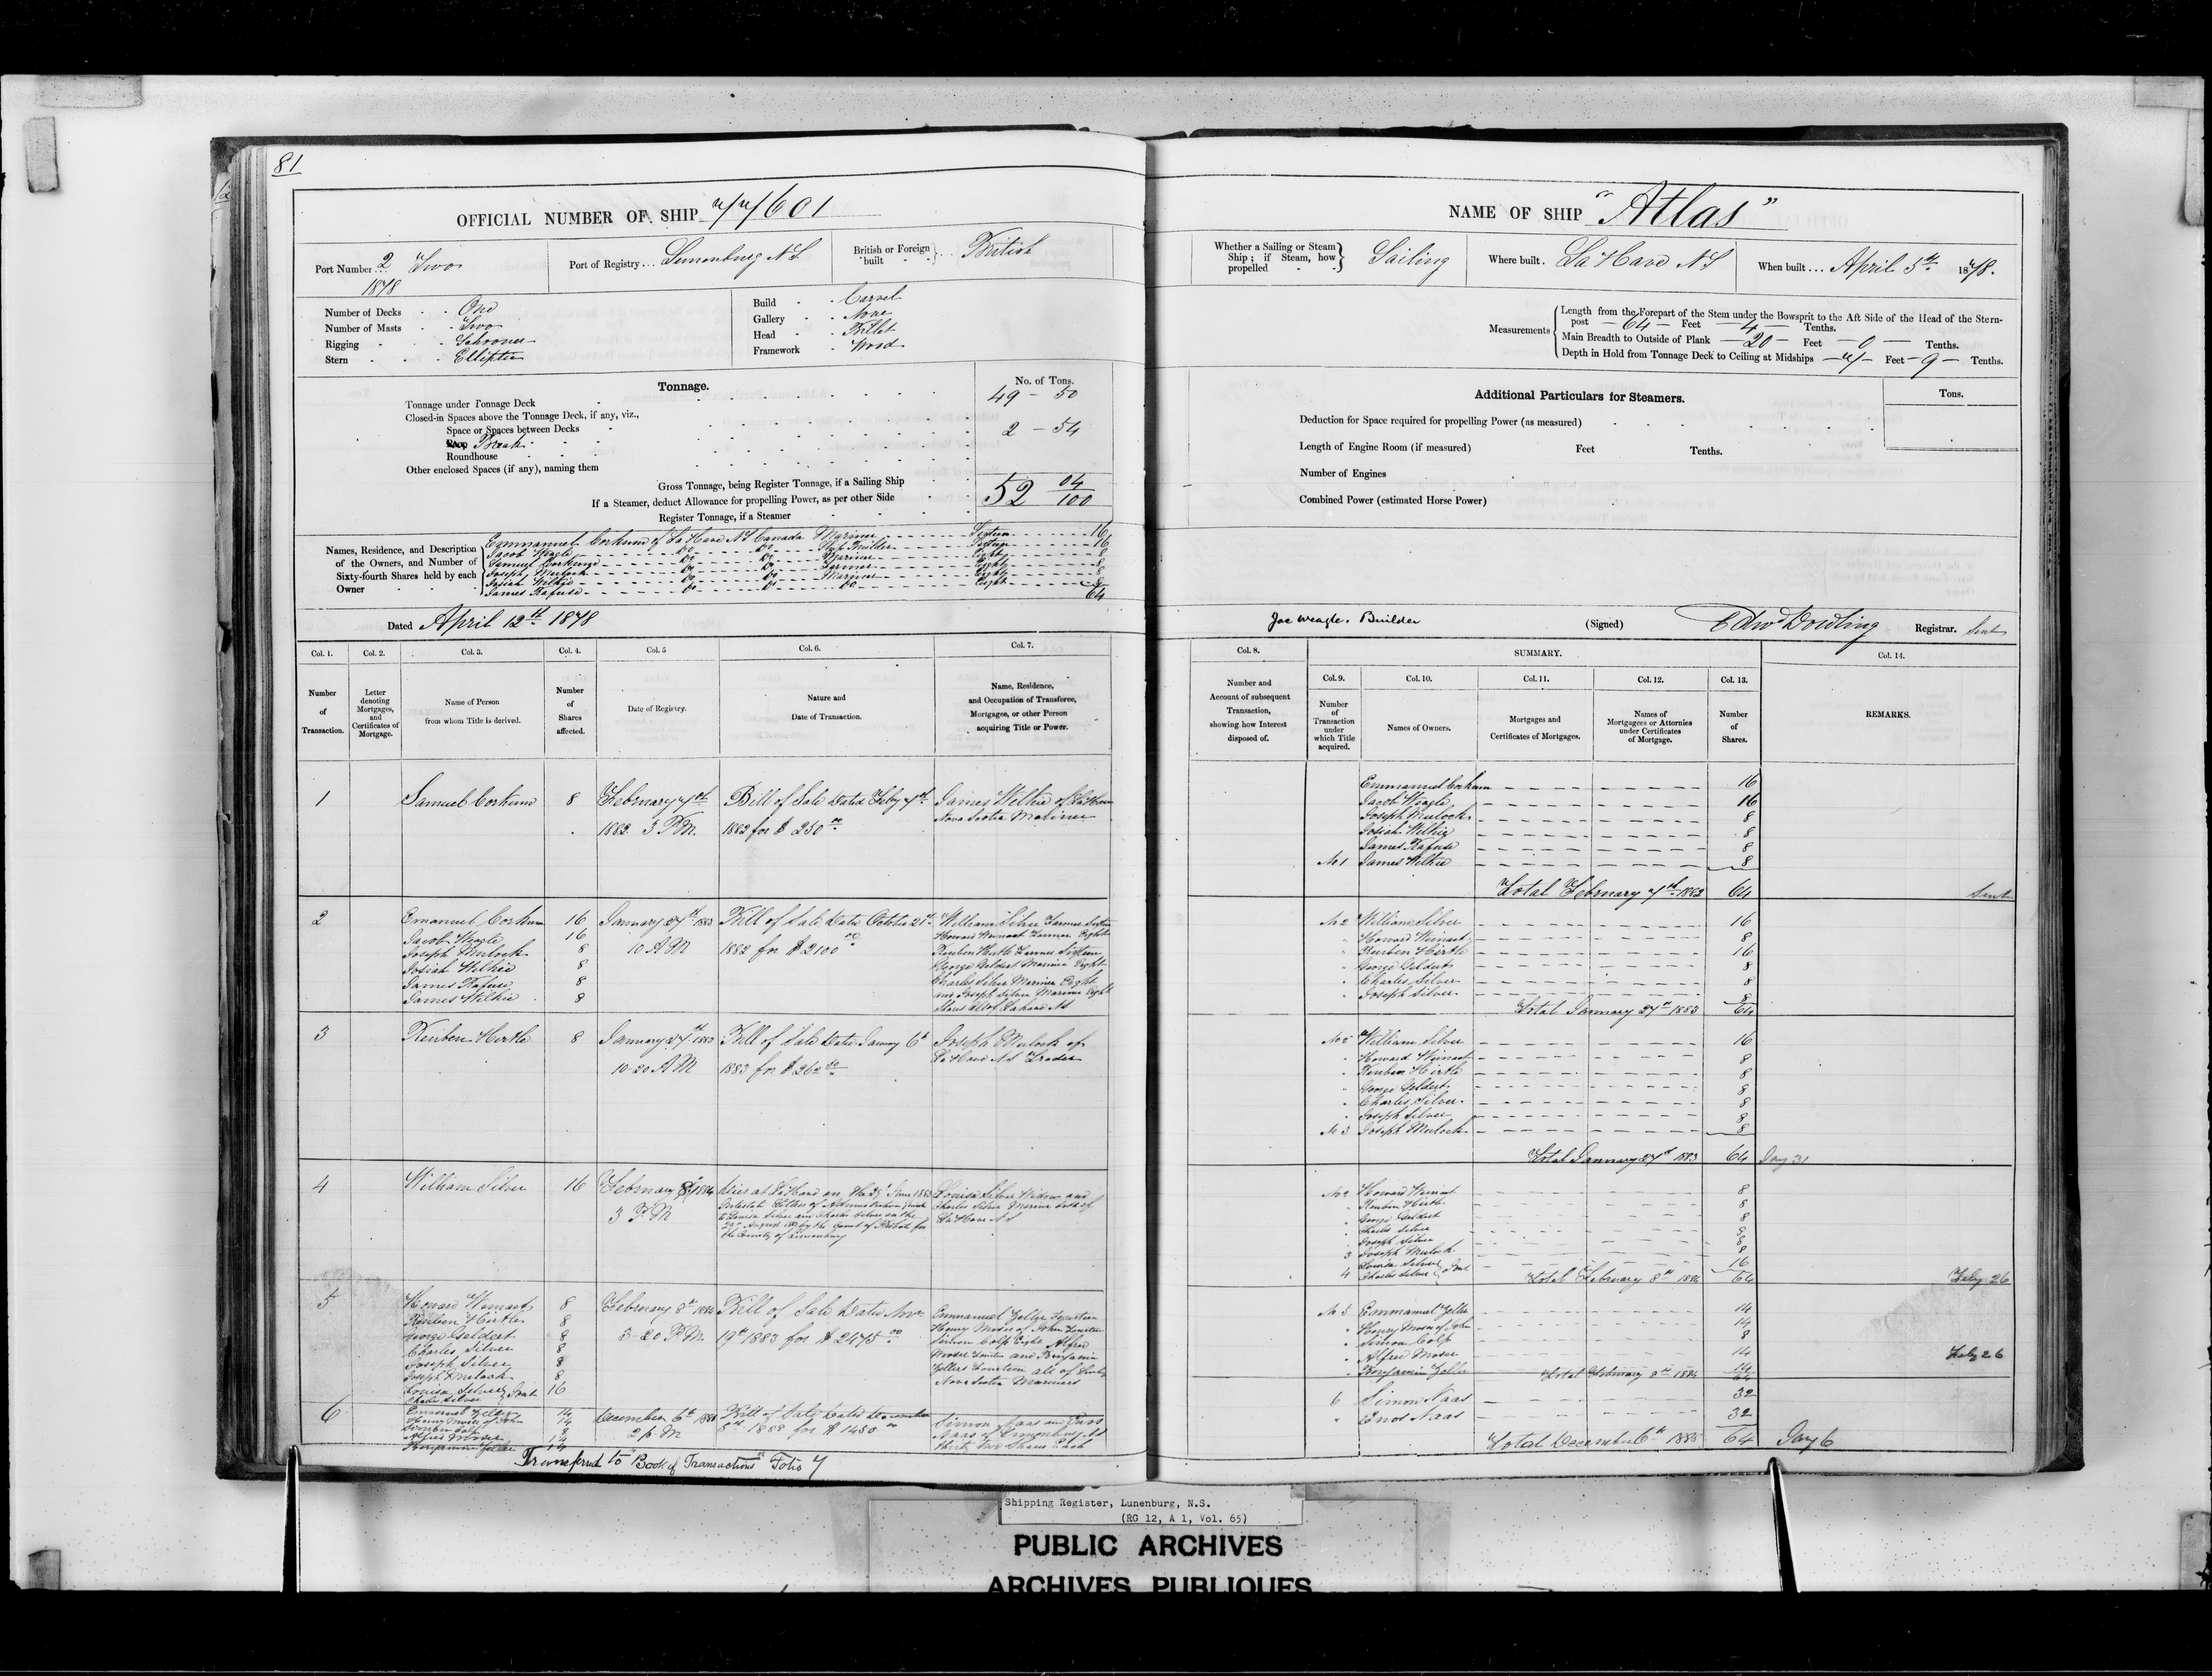 81
OFFICIAL NUMBER OF SHIP 77601
Port Number 2 Two
1878
Port of Registry... Lunenburg N S
British or Foreign built British
Number of Decks One
Number of Masts Two
Rigging Schooner
Stern Elliptic
Build Carvel
Gallery None
Head Billet
Framework Wood
Tonnage.
No. of Tons.
Tonnage under Tonnage Deck 49 - 50
Closed-in Spaces above the Tonnage Deck, if any, viz.,
Space or Spaces between Decks
Poop Break 2 - 54
Roundhouse
Other enclosed Spaces (if any), naming them
Gross Tonnage, being Register Tonnage, if a Sailing Ship 52 04/100
If a Steamer, deduct Allowance for propelling Power, as per other Side
Register Tonnage, if a Steamer
Names, Residence, and Description of the Owners, and Number of Sixty-fourth Shares held by each Owner
Emmanuel Corkum of La Have N S Canada Mariner Sixteen 16
Jacob Weagle Do Do Ship Builder Sixteen 16
Samuel Corkum Do Do Mariner Eight 8
Joseph Mulock Do Do Farmer Eight 8
Josiah Wilkie Do Do Mariner Eight 8
James Rafuse Do Do Do Eight 8
64
Dated April 12th 1878
Col. 1. Col. 2. Col. 3. Col. 4. Col. 5 Col. 6. Col. 7.
Number of Transaction.
Letter denoting Mortgages, and Certificates of Mortgage.
Name of Person from whom Title is derived.
Number of Shares affected.
Date of Registry.
Nature and Date of Transaction.
Name, Residence, and Occupation of Transferee, Mortgagee, or other Person acquiring Title or Power.
1 Samuel Corkum 8 February 7th Bill of Sale Dated Feby 7th James Wilkie of La Have
1882 3 P.M. 1882 for $ 250 00 Nova Scotia Mariner
2 Emanuel Corkum 16 January 27th 1883 Bill of Sale Dated October 21st William Silver Farmer Sixteen
Jacob Weagle 16 10 A M 1882 for $ 2100 00 Howard Weinact Farmer Eight
Joseph Mulock 8 Reuben Hirtle Farmer Sixteen
Josiah Wilkie 8 George Geldert Mariner Eight
James Rafuse 8 Charles Silver Mariner Eight
James Wilkie 8 and Joseph Silver Mariner Eight
Shares all of Lahave N S
3 Reuben Hirtle 8 January 27th 1883 Bill of Sale Dated January 6th Joseph Mulock of
10-20 A M 1883 for $ 262 50 La Have N S Trader
4 William Silver 16 February 8th 1884 Died at La Have on the June 1883 Louisa Silver Widow and
3 P M Intestate Letters of Administration Charles Silver Mariner both of
to Louisa Silver and Charles Silver on the La Have N S
August 1883 by the Court of Probate for
the County of Lunenburg
5 Howard Weinact 8 February 8th 1884 Bill of Sale Dated Novr Emmanuel Zeller Fourteen
Reuben Hirtle 8 3-20 P.M. 19th 1883 for $ 2475 00 Henry Moser of John Fourteen
George Geldert 8 Simon Colp Eight Alfred
Charles Silver 8 Moser Fourteen and Benjamin
Joseph Silver 8 Zellers Fourteen all of
Joseph Mulock 8 Nova Scotia Mariners
Louisa Silver Joint 16
Charles Silver
6 Emanuel Zeller 14 December 6th 1888 Bill of Sale Dated December Simon Naas and Enos
Henry Moser of John 14 2 p. M 5th 1888 for $ 1450 00 Naas of Lunenburg N S
Simon Colp 8 Thirty Two Shares Each
Alfred Moser 14
Benjamin Zeller 14
Transferred to "Book of Transactions" Folio 7
NAME OF SHIP "Atlas"
Whether a Sailing or Steam Ship; if Steam, how propelled Sailing
Where built. La Have N S
When built... April 5th 1878.
Measurements
Length from the Forepart of the Stem under the Bowsprit to the Aft Side of the Head of the Stern-
post 64 Feet 4 Tenths.
Main Breadth to Outside of Plank 20 Feet 0 Tenths.
Depth in Hold from Tonnage Deck to Ceiling at Midships 7 Feet 9 Tenths.
Additional Particulars for Steamers.
Tons.
Deduction for Space required for propelling Power (as measured)
Length of Engine Room (if measured) Feet Tenths.
Number of Engines
Combined Power (estimated Horse Power)
Jac Weagle. Builder
(Signed) Edwd Dowling Registrar. Sent
Col. 8. SUMMARY. Col. 14.
Col. 9. Col. 10. Col. 11. Col. 12. Col. 13.
Number and Account of subsequent Transaction, showing how Interest disposed of.
Number of Transaction under which Title acquired.
Names of Owners.
Mortgages and Certificates of Mortgages.
Names of Mortgagees or Attornies under Certificates of Mortgage.
Number of Shares.
REMARKS.
Emmanuel Corkum 16
Jacob Weagle 16
Joseph Mulock 8
Josiah Wilkie 8
James Rafuse 8
No 1 James Wilkie 8
Total February 7th 1882 64 Sent
No 2 William Silver 16
" Howard Weinact 8
" Reuben Hirtle 16
" George Geldert 8
" Charles Silver 8
" Joseph Silver 8
Total January 27th 1883 64
No 2 William Silver 16
" Howard Weinact 8
" Reuben Hirtle 8
" George Geldert 8
" Charles Silver 8
" Joseph Silver 8
No 3 Joseph Mulock 8
Total January 27th 1883 64 Jany 31
No 2 Howard Weinact 8
" Reuben Hirtle 8
" George Geldert 8
" Charles Silver 8
" Joseph Silver 8
3 Joseph Mulock 8
4 Louisa Silver Charles Silver Joint 16
Total February 8th 1884 64 Feby 26
No 5 Emmanuel Zeller 14
" Henry Moser of John 14
" Simon Colp 8
" Alfred Moser 14 Feby 26
" Benjamin Zeller 14
Total February 8th 1884 64
6 Simon Naas 32
" Enos Naas 32
Total December 6th 1888 64 Jany 6
Shipping Register, Lunenburg, N.S.
(RG 12, A 1, Vol. 65)
PUBLIC ARCHIVES
ARCHIVES PUBLIQUES